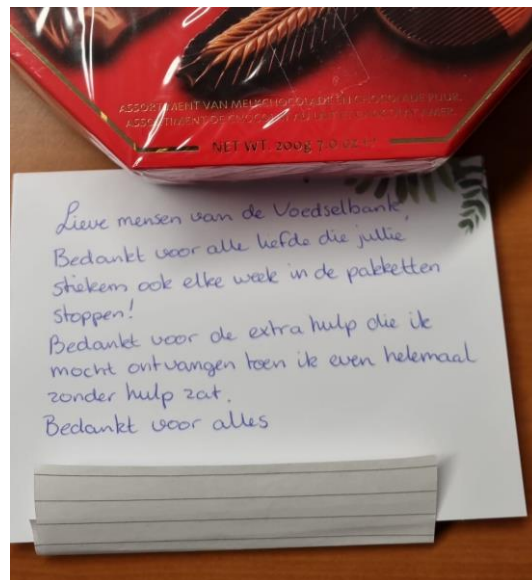 ASSORTIMENT VAN MELKCHOCOLADE EN CHOCOLADE PUUR.
ASSORTIMENT DE CHOCOLAT AU LAIT ET CHOCOLAT AMER.
NET WT. 200g
Lieve mensen van de Voedselbank,
Bedankt voor alle liefde die jullie
stiekem ook elke week in de pakketten
stoppen!
Bedankt voor de extra hulp die ik
mocht ontvangen toen ik even helemaal
zonder hulp zat.
Bedankt voor alles